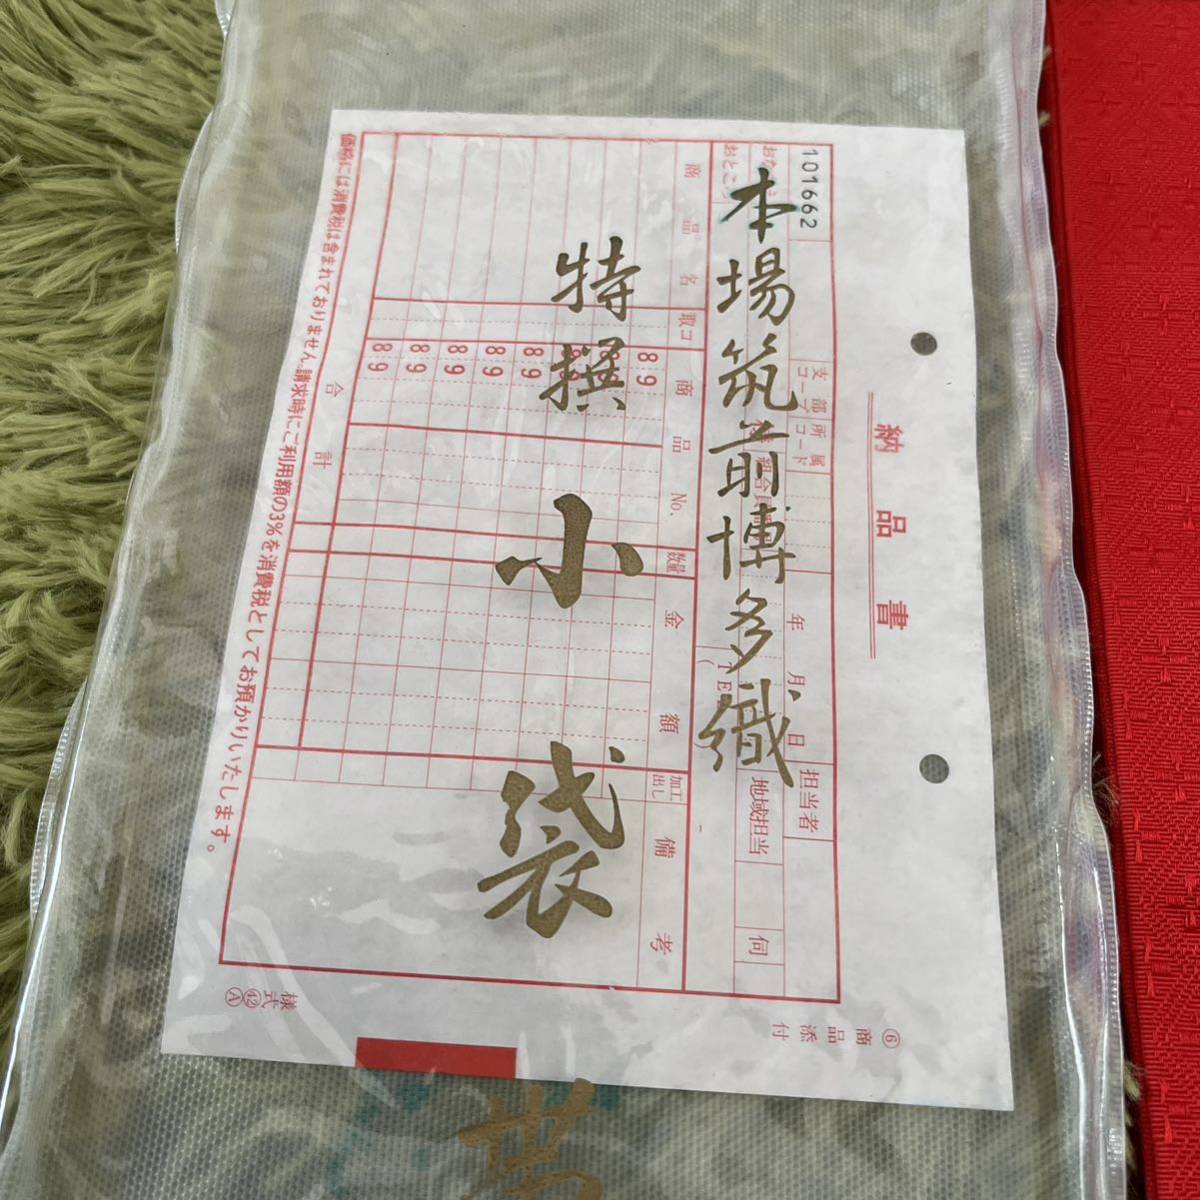 本場筑前博多織
特撰
小袋
帯
納品書
101662
おなまえ
おところ
支部
コード
所属
コード
組合員
年 月 日
担当者
地域担当
伺
商品名
取コ
商品No.
数量
金額
加工出し
備考
89
89
89
89
89
89
合計
価格には消費税は含まれておりません。請求時にご利用額の3%を消費税としてお預かりいたします。
⑥商品添付
様式㊷Ⓐ